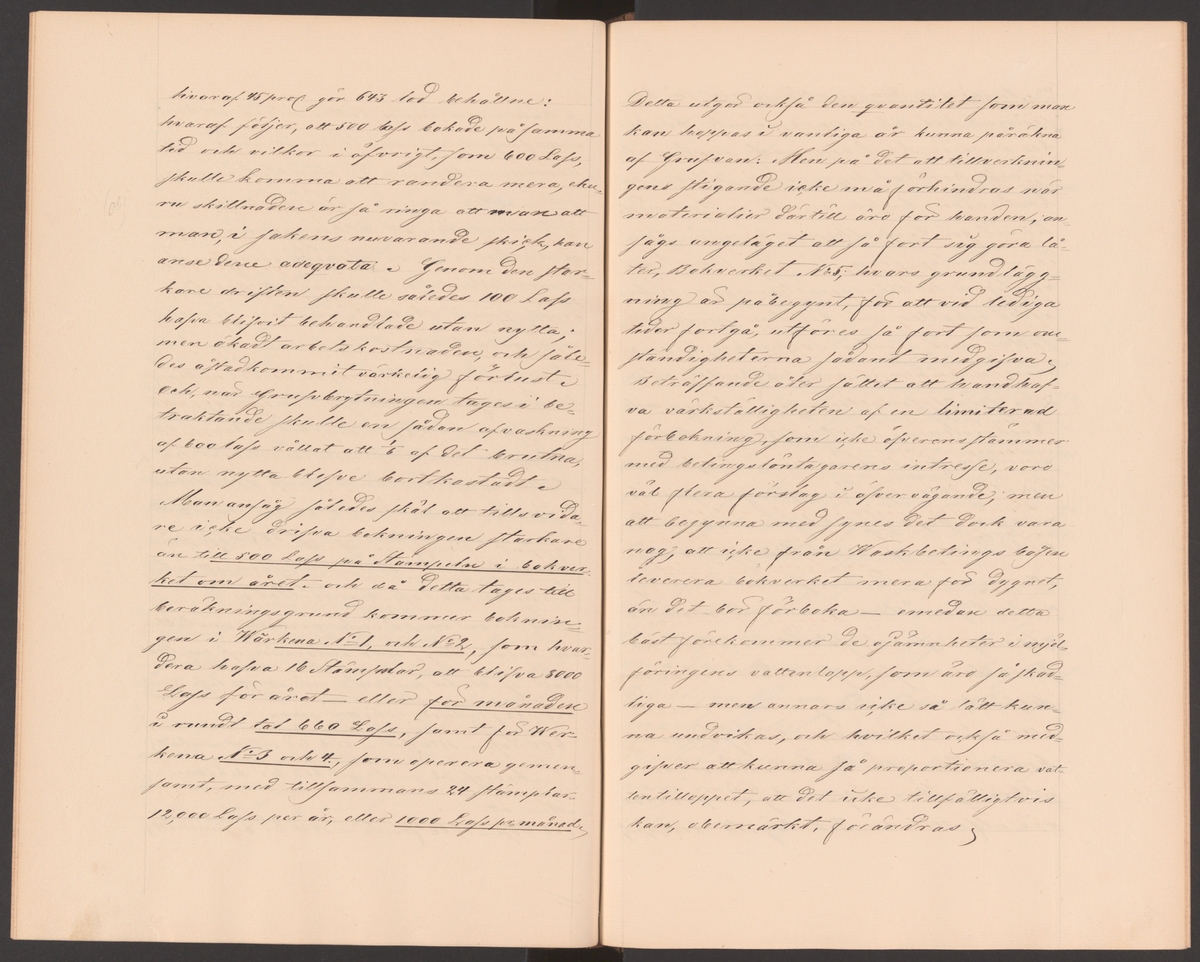 hvaraf 45 proc gör 643 lod behållne:
hvaraf följer, att 500 lass bokade på samma
tid och vilkor i öfvrigt, som 600 Lass,
skulle komma att rendera mera, ehu-
ru skillnaden är så ringa att man att
man, i sakens nuvarande skick, kan
anse dene adeqvata. Genom den star-
kare driften skulle således 100 Lass
hafva blifvit behandlade utan nytta,
men ökadt arbetskostnaden, och såle-
des åstadkommit värkelig förlust.
Och, när Grufvbrytningen tages i be-
traktande skulle en sådan afvaskning
af 600 lass vållat att 1/6 af det brutna,
utan nytta blifve bortkastadt.
Man ansåg således skäl att tills vida-
re icke drifva bokningen starkare
än till 500 Lass på Stämpeln i bokver-
ket om året, och då detta tages till
beräkningsgrund kommer boknin-
gen i Wärkena No 1, och No 2, som hvar-
dera hafva 16 Stämplar, att blifva 8000
Lass för året — eller för månaden
i rundt tal 660 Lass, samt för Wer-
kena No 3 och 4., som operera gemen-
samt, med tillsammans 24 stämplar
12,000 Lass per år, eller 1000 Lass pr månad,
Detta utgör också den qvantitet som man
kan hoppas i vanliga år kunna påräkna
af Grufvan: Men på det att tillverknin
gens stigande icke må förhindras när
materialier därtill äro för handen, an
sågs angeläget att så fort sig göra lå-
ter, Bokverket No 5; hvars grundlägg-
ning är påbegynt, för att vid lediga
tider fortgå, utföres så fort som om-
ständigheterna sådant medgifva,
Beträffande åter sättet att handhaf-
va värkställigheten af en limiterad
förbokning, som icke öfverensstämmer
med betingslöntagarens intresse, voro
väl flera förslag i öfvervägande; men
att begynna med synes det dock vara
nog, att icke från Waskbetings bogen
leverera bokverket mera för dygnet,
än det bör förboka — emedan detta
bäst förekommer de ojämnheter i mjöl-
föringens vattenlopp, som äro så skad-
liga — men annars icke så lätt kun-
na undvikas, och hvilket också med-
gifver att kunna så proportionera vat-
tentilloppet, att det icke tillfälligtvis
kan, obemärkt, förändras,